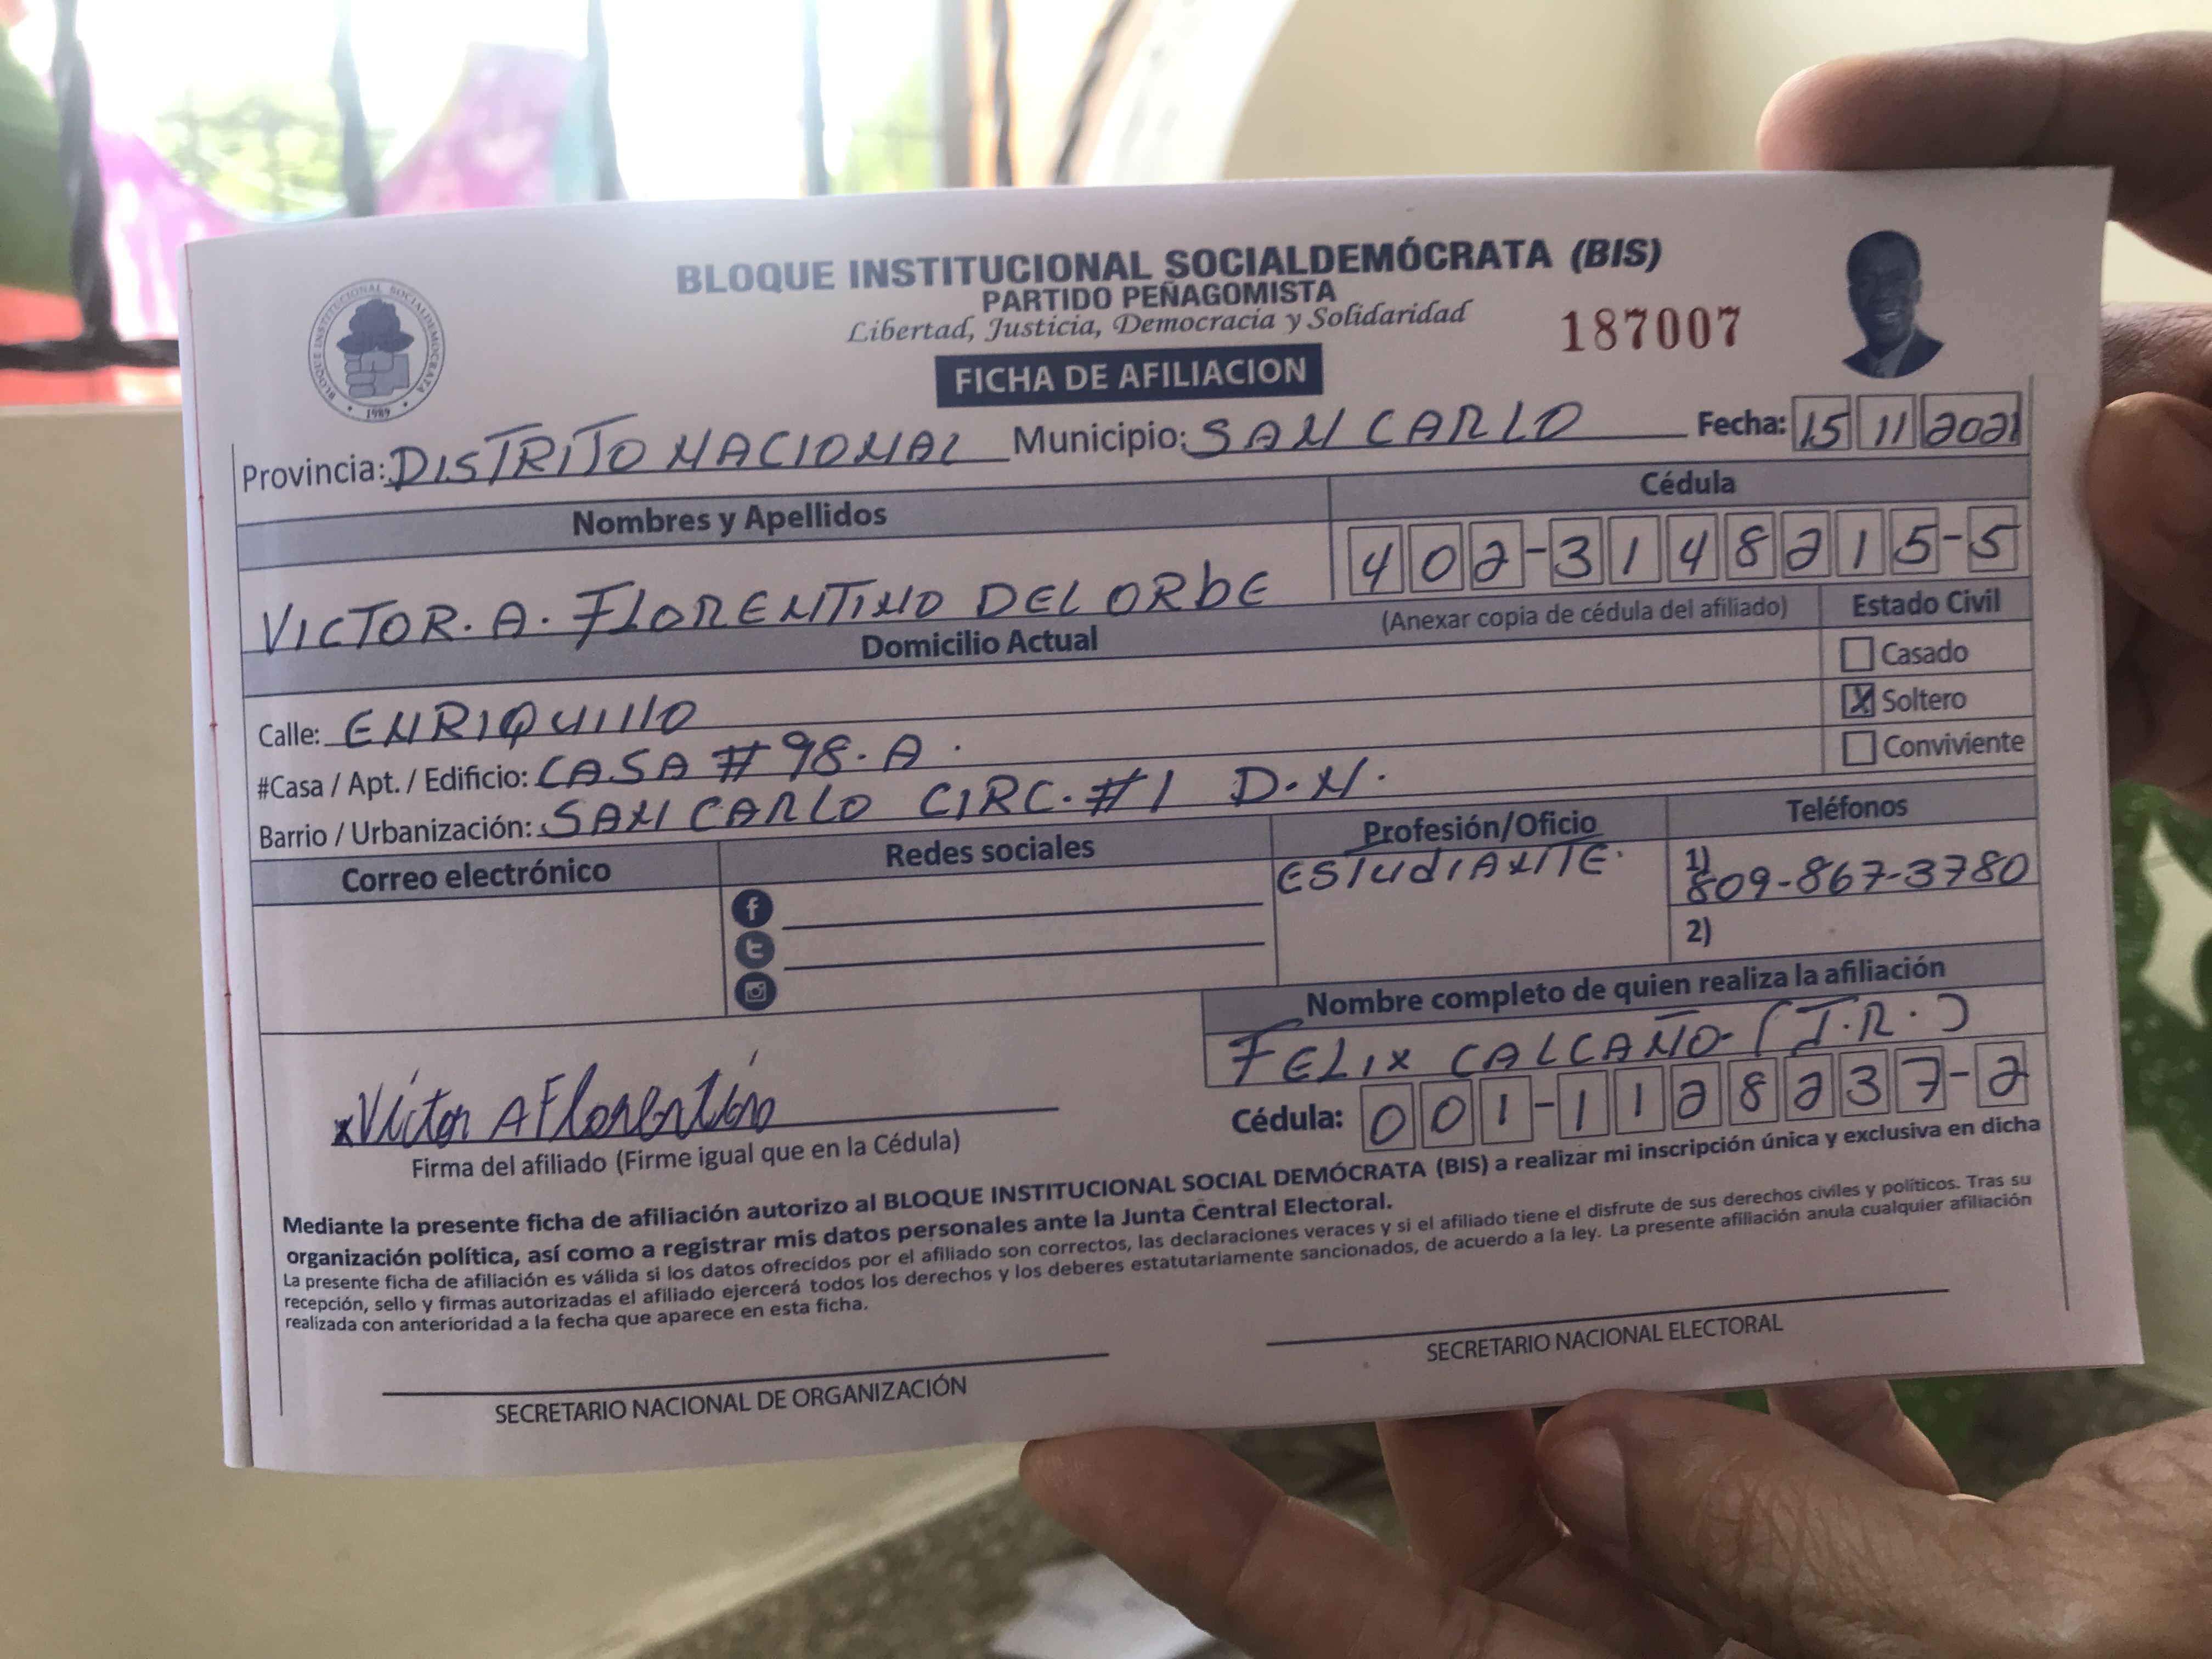 BLOQUE INSTITUCIONAL SOCIALDEMÓCRATA (BIS)
PARTIDO PEÑAGOMISTA
Libertad, Justicia, Democracia y Solidaridad
187007
BLOQUE INSTITUCIONAL SOCIALDEMOCRATA
1989
FICHA DE AFILIACION
Provincia: DISTRITO NACIONAL Municipio: SAN CARLO Fecha: 15 11 2021
Nombres y Apellidos Cédula
VICTOR. A. FLORENTINO DEL ORbE 402-3148215-5
(Anexar copia de cédula del afiliado)
Domicilio Actual Estado Civil
Casado
Calle: ENRIQUIllO X Soltero
#Casa / Apt. / Edificio: CASA # 98. A. Conviviente
Barrio / Urbanización: SAN CARLO CIRC. #1 D.N.
Correo electrónico Redes sociales Profesión/Oficio Teléfonos
ESTUdIANTE. 1) 809-867-3780
2)
Nombre completo de quien realiza la afiliación
FELIX CALCAÑO (J.R.)
Cédula: 001-1128237-2
x Víctor A Florentino
Firma del afiliado (Firme igual que en la Cédula)
Mediante la presente ficha de afiliación autorizo al BLOQUE INSTITUCIONAL SOCIAL DEMÓCRATA (BIS) a realizar mi inscripción única y exclusiva en dicha
organización política, así como a registrar mis datos personales ante la Junta Central Electoral.
La presente ficha de afiliación es válida si los datos ofrecidos por el afiliado son correctos, las declaraciones veraces y si el afiliado tiene el disfrute de sus derechos civiles y políticos. Tras su
recepción, sello y firmas autorizadas el afiliado ejercerá todos los derechos y los deberes estatutariamente sancionados, de acuerdo a la ley. La presente afiliación anula cualquier afiliación
realizada con anterioridad a la fecha que aparece en esta ficha.
SECRETARIO NACIONAL DE ORGANIZACIÓN
SECRETARIO NACIONAL ELECTORAL